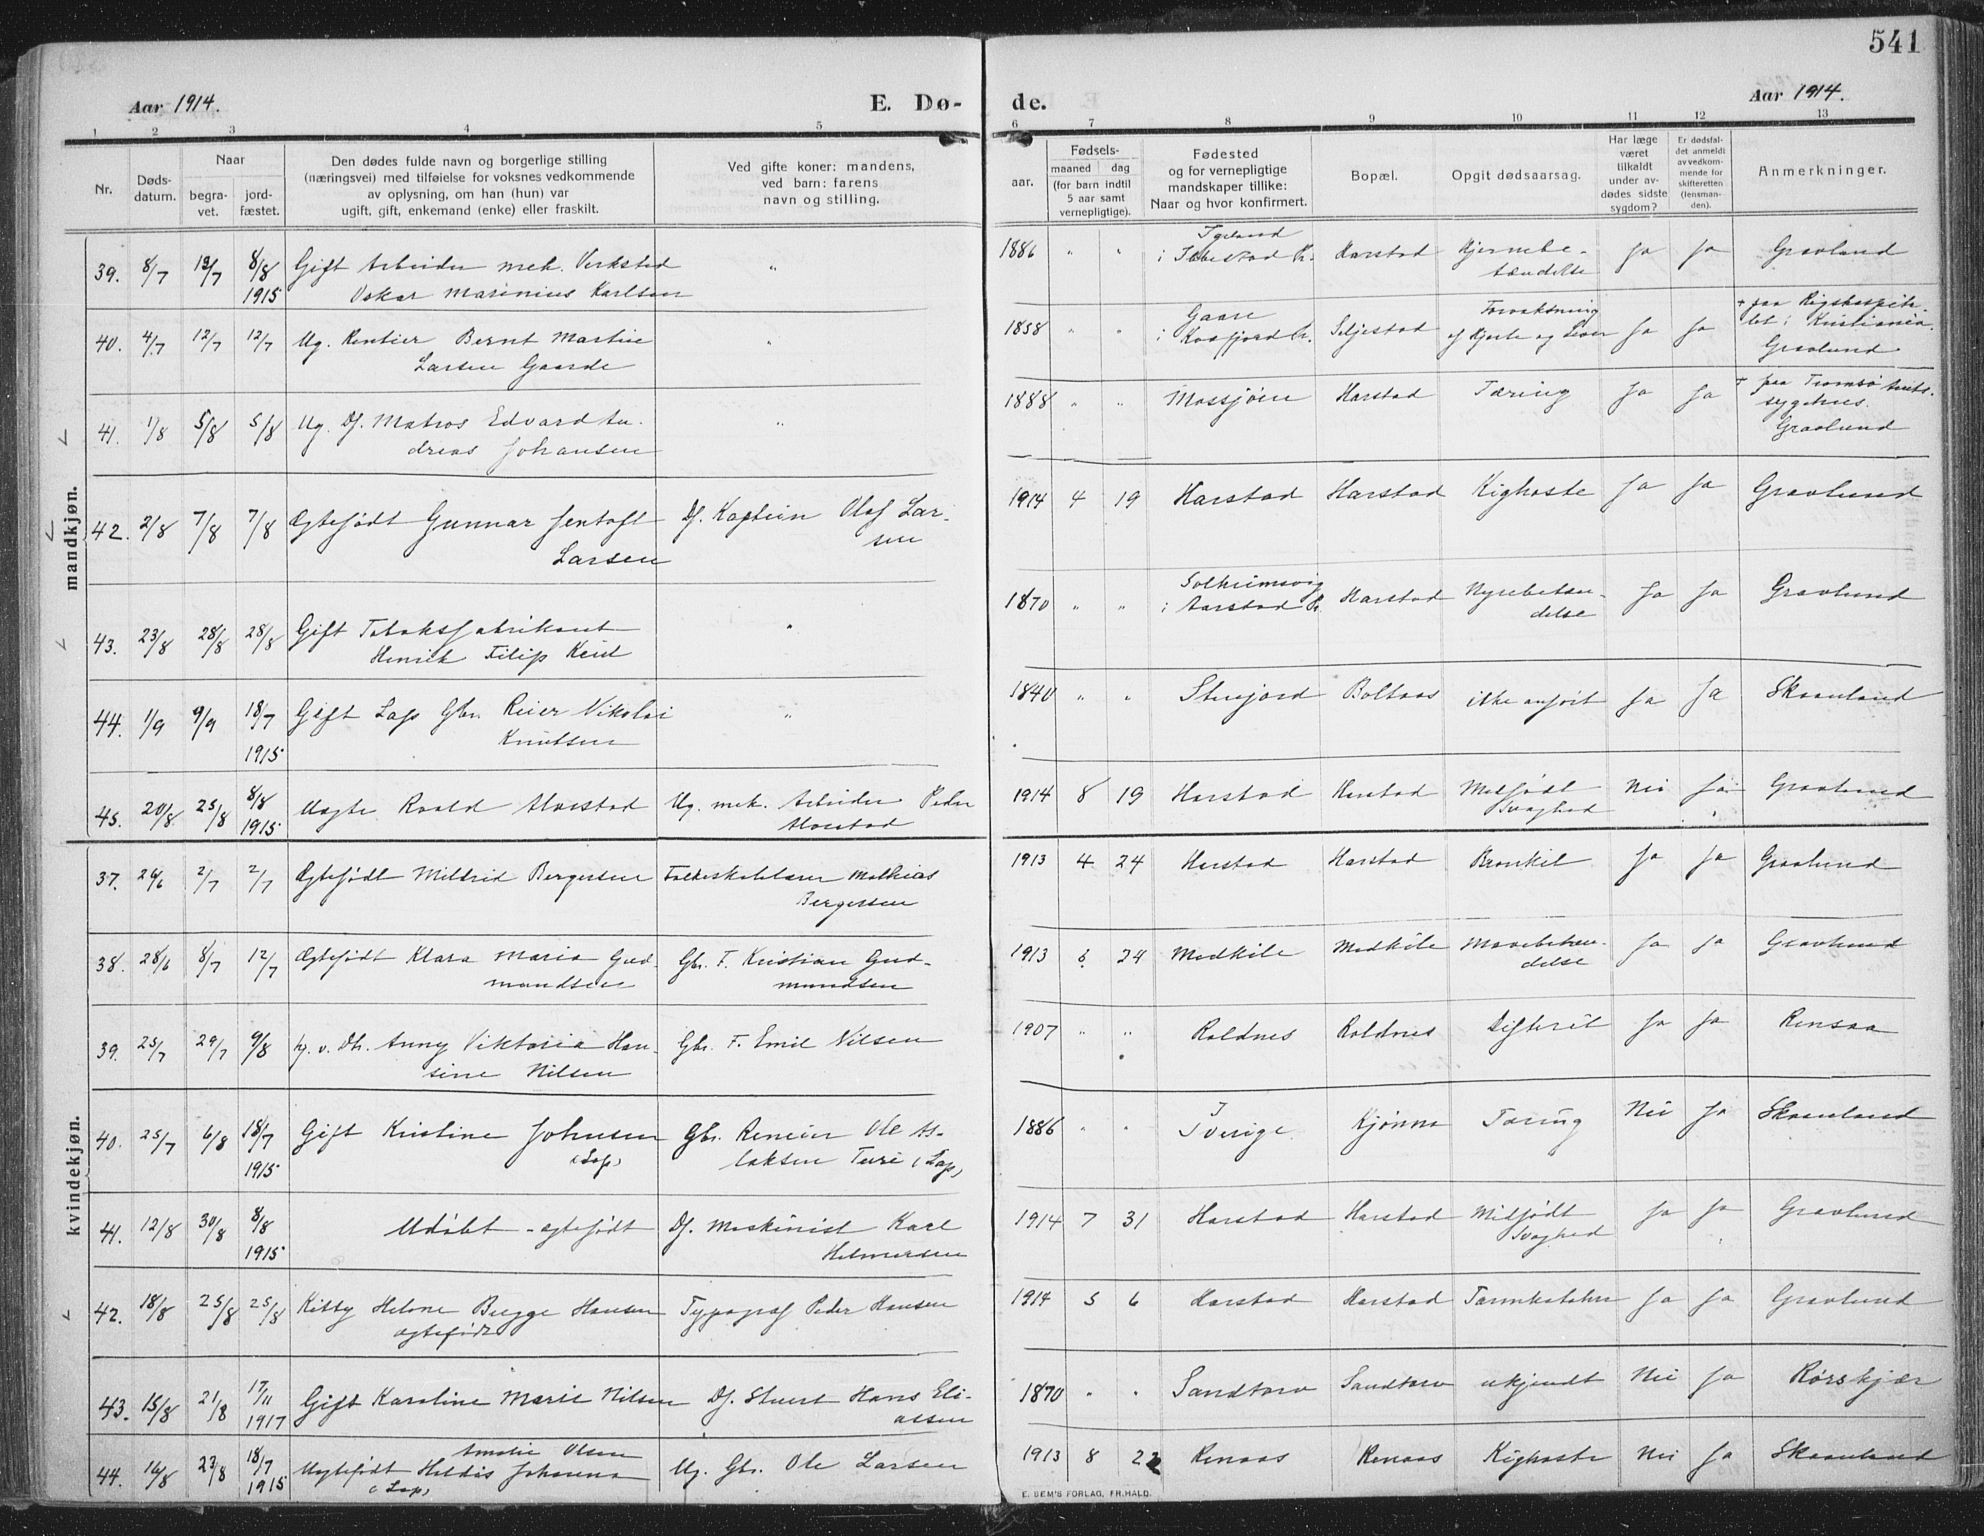 541
Aar 1914.
E. Dø-
de.
Aar 1914.
1 2 3 4 5 6 7 8 9 10 11 12 13
Nr.
Døds-
datum.
Naar
begra-
vet.
jord-
fæstet.
Den dødes fulde navn og borgerlige stilling
(næringsvei) med tilføielse for voksnes vedkommende
av oplysning, om han (hun) var
ugift, gift, enkemand (enke) eller fraskilt.
Ved gifte koner: mandens,
ved barn: farens
navn og stilling.
Fødsels-
aar.
maaned dag
(for barn indtil
5 aar samt
vernepligtige).
Fødested
og for vernepligtige
mandskaper tillike:
Naar og hvor konfirmert.
Bopæl.
Opgit dødsaarsag.
Har læge
været
tilkaldt
under av-
dødes sidste
sygdom?
Er dødsfal-
det anmeldt
av vedkom-
mende for
skifteretten
(lensman-
den).
Anmerkninger.
mandkjøn.
39. 8/7 13/7 8/8 Gift Arbeider mek. Verksted " 1886 " " i Ibbestad Pr. Harstad Hjernebe- Ja Ja Gravlund
1915 Oskar Marinius Karlsen tændelse
40. 4/7 12/7 12/7 Ug. Rentier Bernt Martin " 1858 " " Gaare Seljestad Forvoksning Ja Ja + paa Rigshospita-
Larsen Gaarde i Kvæfjord Pr. af Hjerte og Lever let i Kristiania.
Gravlund
41. 1/8 5/8 5/8 Ug. Df. Matros Edvard An- " 1888 " " Mossjøen Harstad Tæring Ja Ja + paa Tromsø Amts-
dreas Johansen sygehus.
Gravlund
42. 2/8 7/8 7/8 Ægtefødt Gunnar Jentoft Df. Kaptein Olaf Lar- 1914 4 19 Harstad Harstad Kighoste Ja Ja Gravlund
Larsen sen
43. 23/8 28/8 28/8 Gift Tobaksfabrikant " 1870 " " Solheimsvig Harstad Nyrebetæn- Ja Ja Gravlund
Henrik Filip Keul i Aarstad Pr. delse
44. 1/9 9/9 18/7 Gift Lap Gbr. Reier Nikolai " 1840 " " Stenjord Boltaas ikke anført Ja Ja Skaanland
1915 Knutsen
45. 20/8 25/8 8/8 Uægte Roald Aarstad Ug. mek. Arbeider Peder 1914 8 19 Harstad Harstad Medfødt Nei Ja Gravlund
1915 Aarstad Svaghed
kvindekjøn.
37. 26/6 2/7 2/7 Ægtefødt Mildrid Bergersen Folkeskolelærer Mathias 1913 4 24 Harstad Harstad Bronkit Ja Ja Gravlund
Bergersen
38. 28/6 8/7 12/7 Ægtefødt Klara Maria Gud- Gbr. F. Kristian Gud- 1913 6 24 Medkile Medkile Mavebetæn- Ja Ja Gravlund
mundsen mundsen delse
39. 25/7 29/7 9/8 Hj. v. Db. Anny Viktoria Han- Gbr. F. Emil Nilsen 1907 " " Roldnes Roldnes Difterit Ja Ja Rensaa
sine Nilsen
40. 25/7 6/8 18/7 Gift Kristine Johnsen Gbr. Reneier Ole As- 1886 " " I Sverige Kjønna Tæring Nei Ja Skaanland
1915 (Lap) laksen Turi (Lap)
41. 12/8 30/8 8/8 Udøbt - ægtefødt Df. Maskinist Karl 1914 7 31 Harstad Harstad Medfødt Ja Ja Gravlund
1915 Helmersen Svaghed
42. 18/8 25/8 25/8 Kitty Helene Bugge Hansen Typograf Peder Hansen 1914 5 6 Harstad Harstad Tarmkatahr Ja Ja Gravlund
ægtefødt
43. 15/8 21/8 17/11 Gift Karoline Marie Nilsen Df. Stuert Hans Eli- 1870 " " Sandtorv Sandtorv ukjendt Nei Ja Rørskjær
1917 assen
44. 16/8 23/8 18/7 Amalie Olsen
1915 Uægtefødt Heldis Johanna Ug. Gbr. Ole Larsen 1913 8 22 Renaas Renaas Kighoste Nei Ja Skaanland
(Lap)
E. SEM'S FORLAG, FR.HALD.